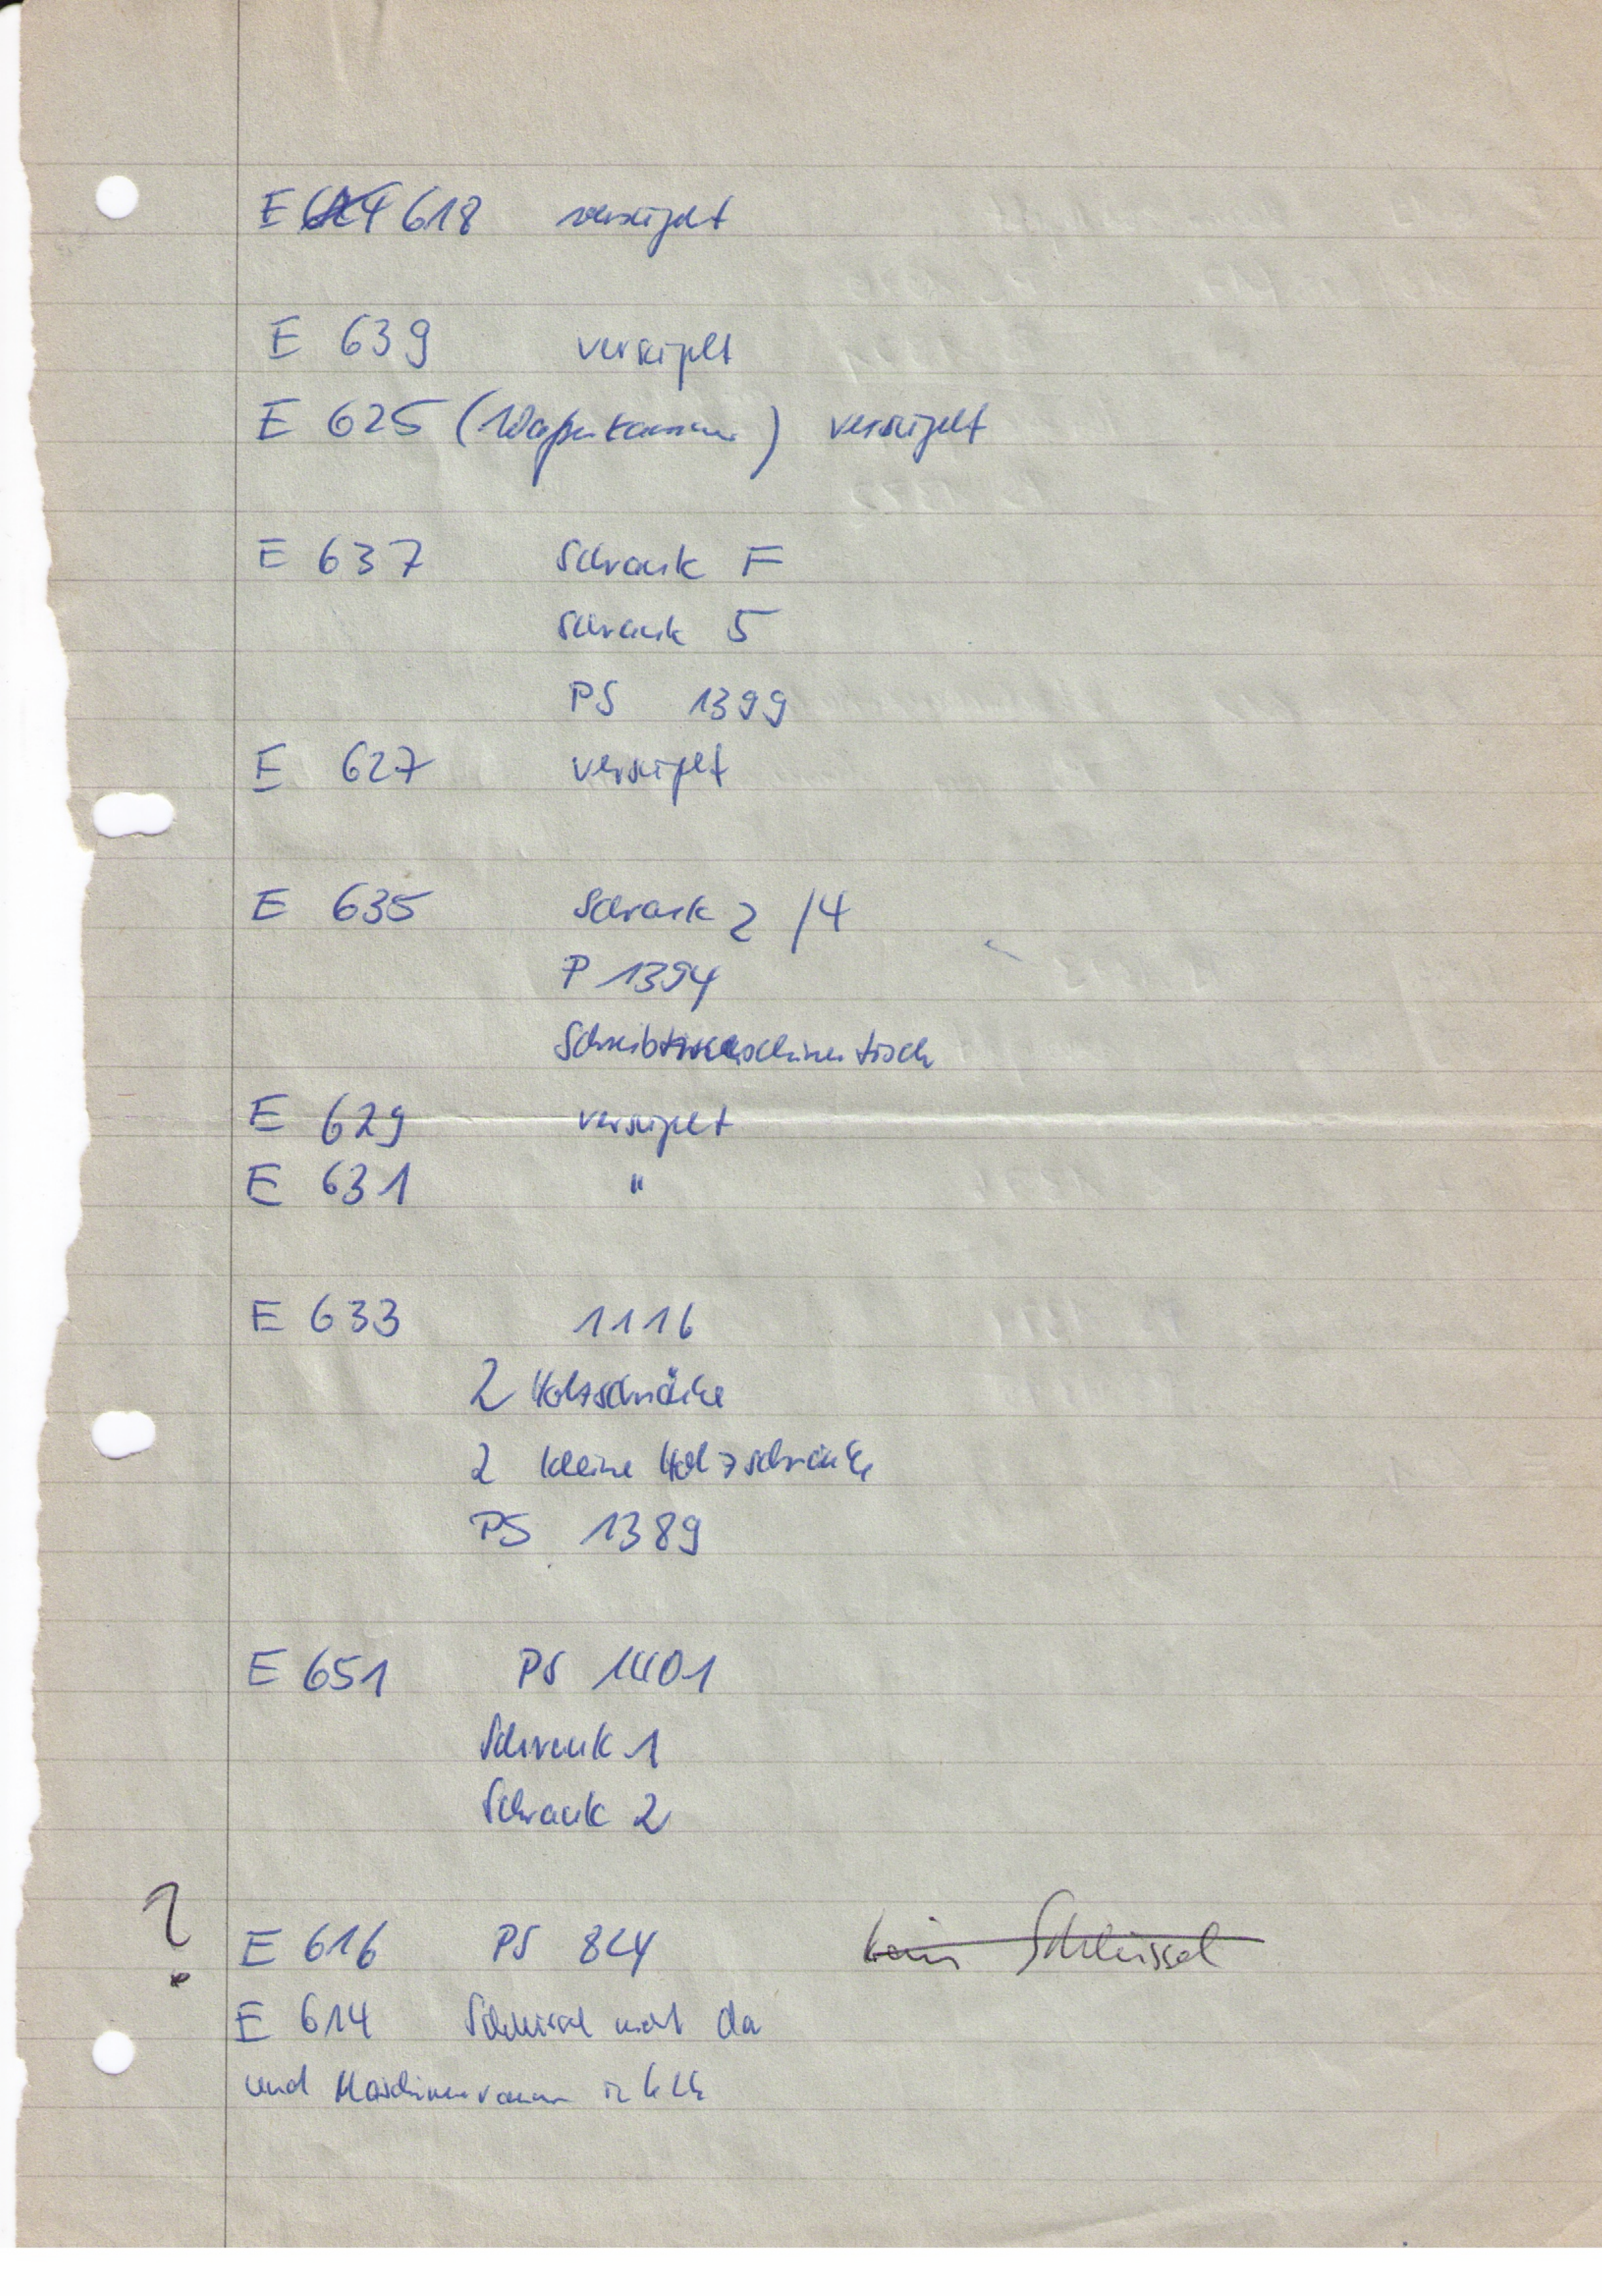 E 618 versigelt
E 639 versigelt
E 625 (Waffenkammer) versigelt
E 637 Schrank F
Schrank 5
PS 1399
E 627 versigelt
E 635 Schrank 2 /4
P 1394
Schreibmaschinentisch
E 629 versigelt
E 631 "
E 633 1116
2 Holzschränke
2 kleine Holzschränke
PS 1389
E 651 PS 1401
Schrank 1
Schrank 2
?
E 616 PS 824 kein Schlüssel
E 614 Schlüssel nicht da
und Maschinenraum